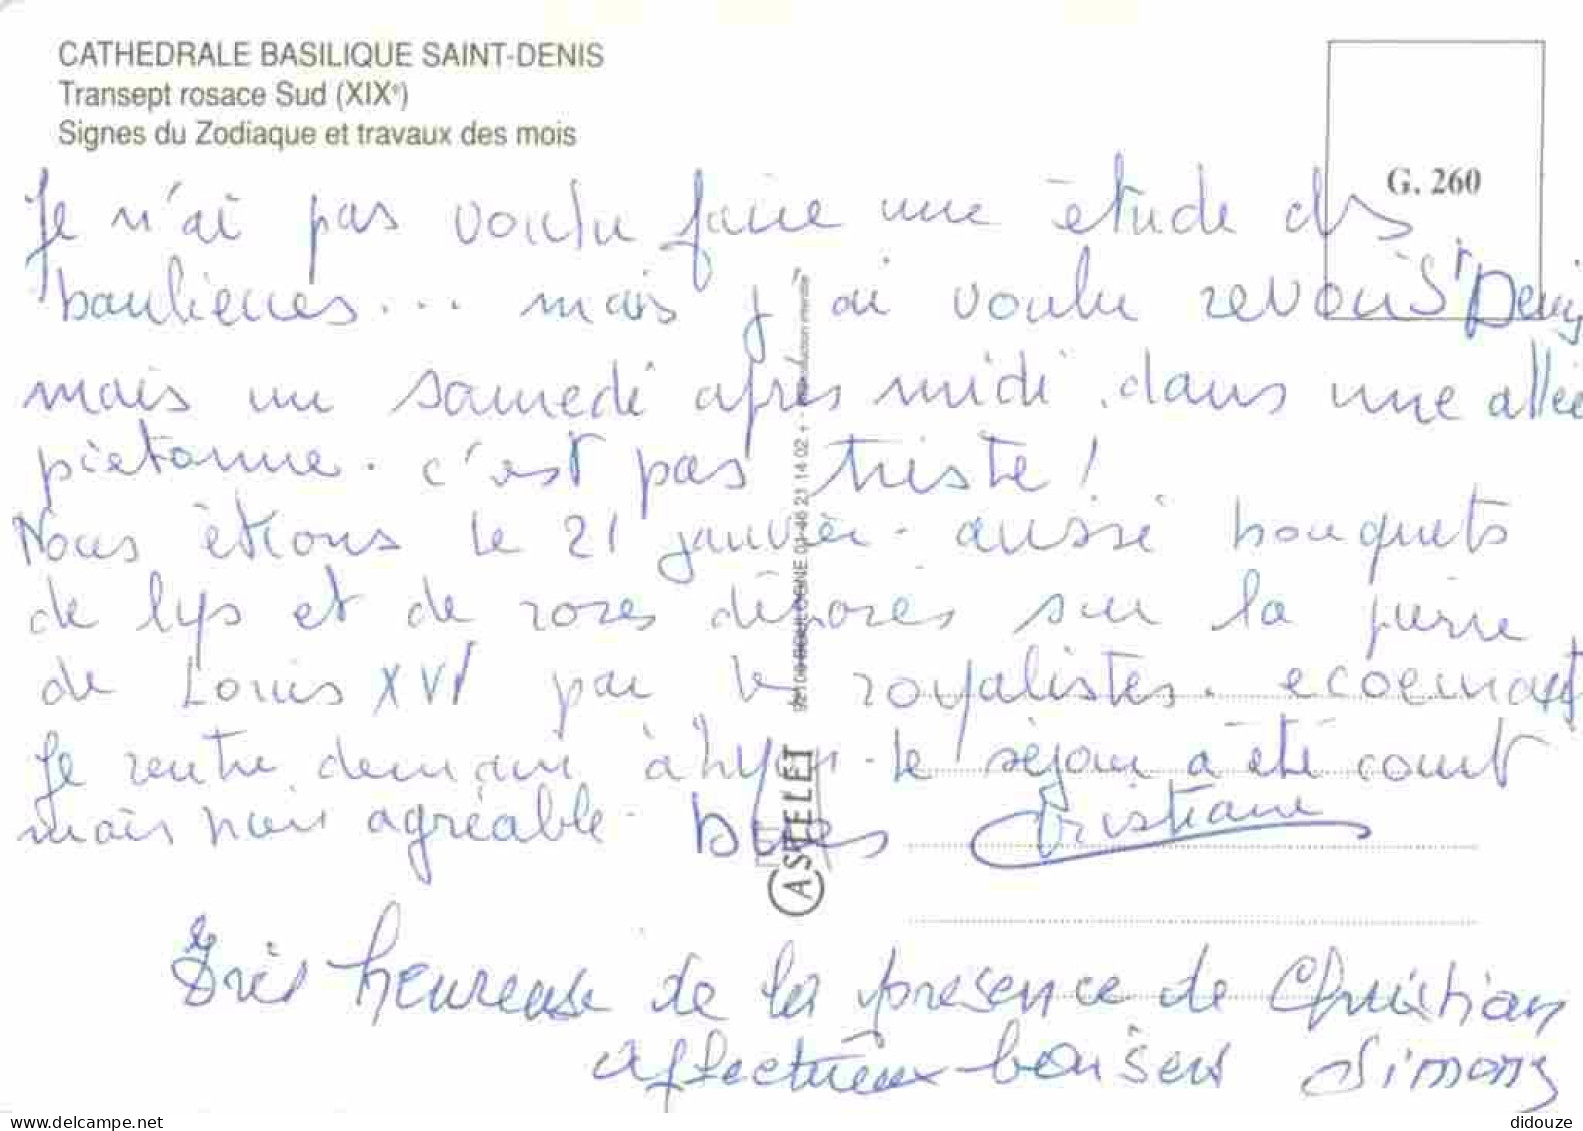 CATHEDRALE BASILIQUE SAINT-DENIS
Transept rosace Sud (XIXe)
Signes du Zodiaque et travaux des mois
G. 260
Je n'ai pas voulu faire une étude des
banlieues... mais j'ai voulu revoir St Denis
mais un samedi après midi. dans une allée
pietonne. c'est pas triste!
Nous étions le 21 janvier. aussi bouquets
de lys et de roses déposés sur la pierre
de Louis XVI par les royalistes. ecoeurant
Je rentre demain à Lyon. le séjour a été court
mais agréable. Bises Christiane
Très heureuse de la presence de Christian
affectueux baisers Simone
CASTELET
92100 BOULOGNE 01 46 21 14 02 + - Reproduction interdite
didouze